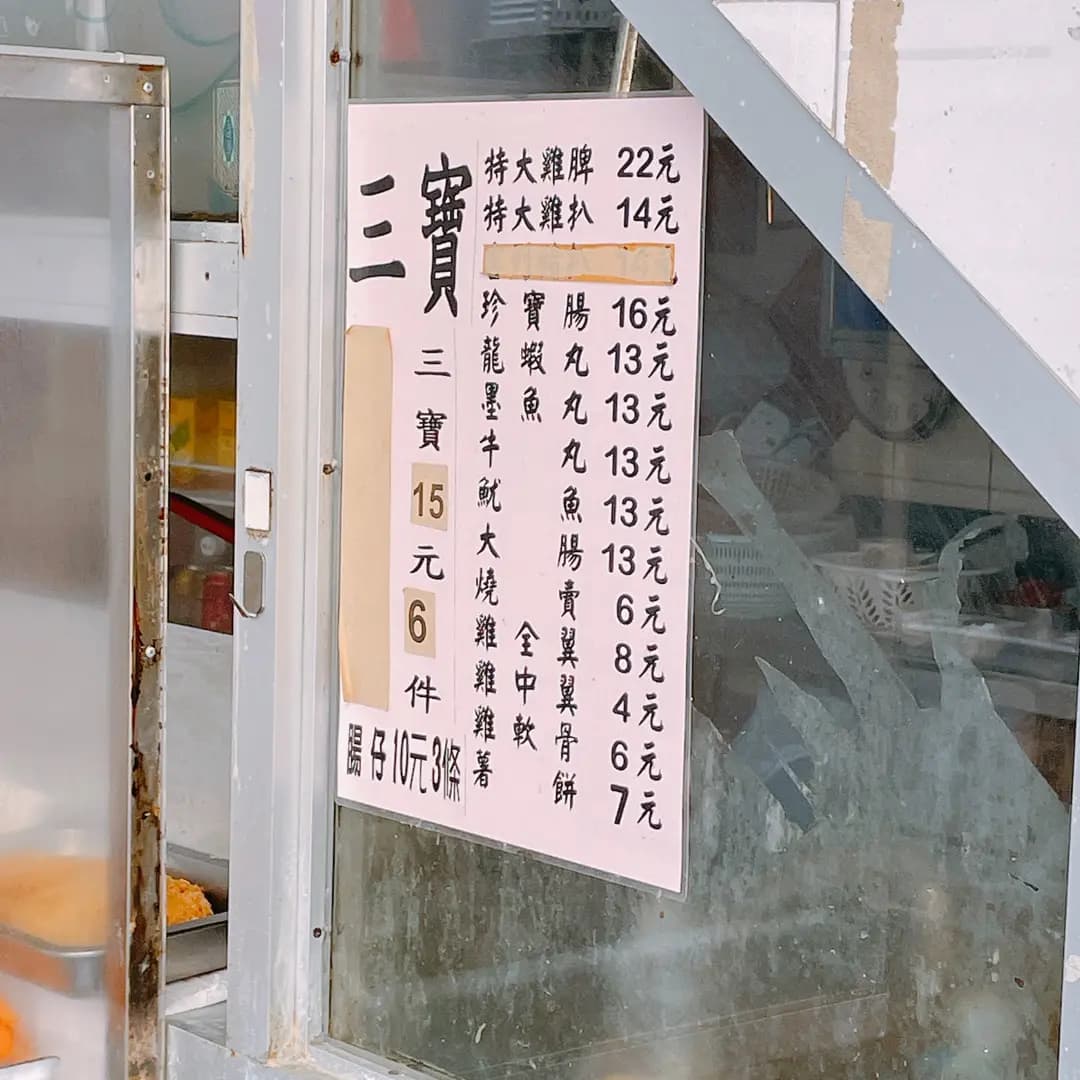 三寶
三寶15元6件
腸仔10元3條
特大雞脾 22元
特大雞扒 14元
珍寶腸 16元
龍蝦丸 13元
墨魚丸 13元
牛丸 13元
魷魚 13元
大腸 13元
燒賣 6元
雞全翼 8元
雞中翼 4元
雞軟骨 6元
薯餅 7元